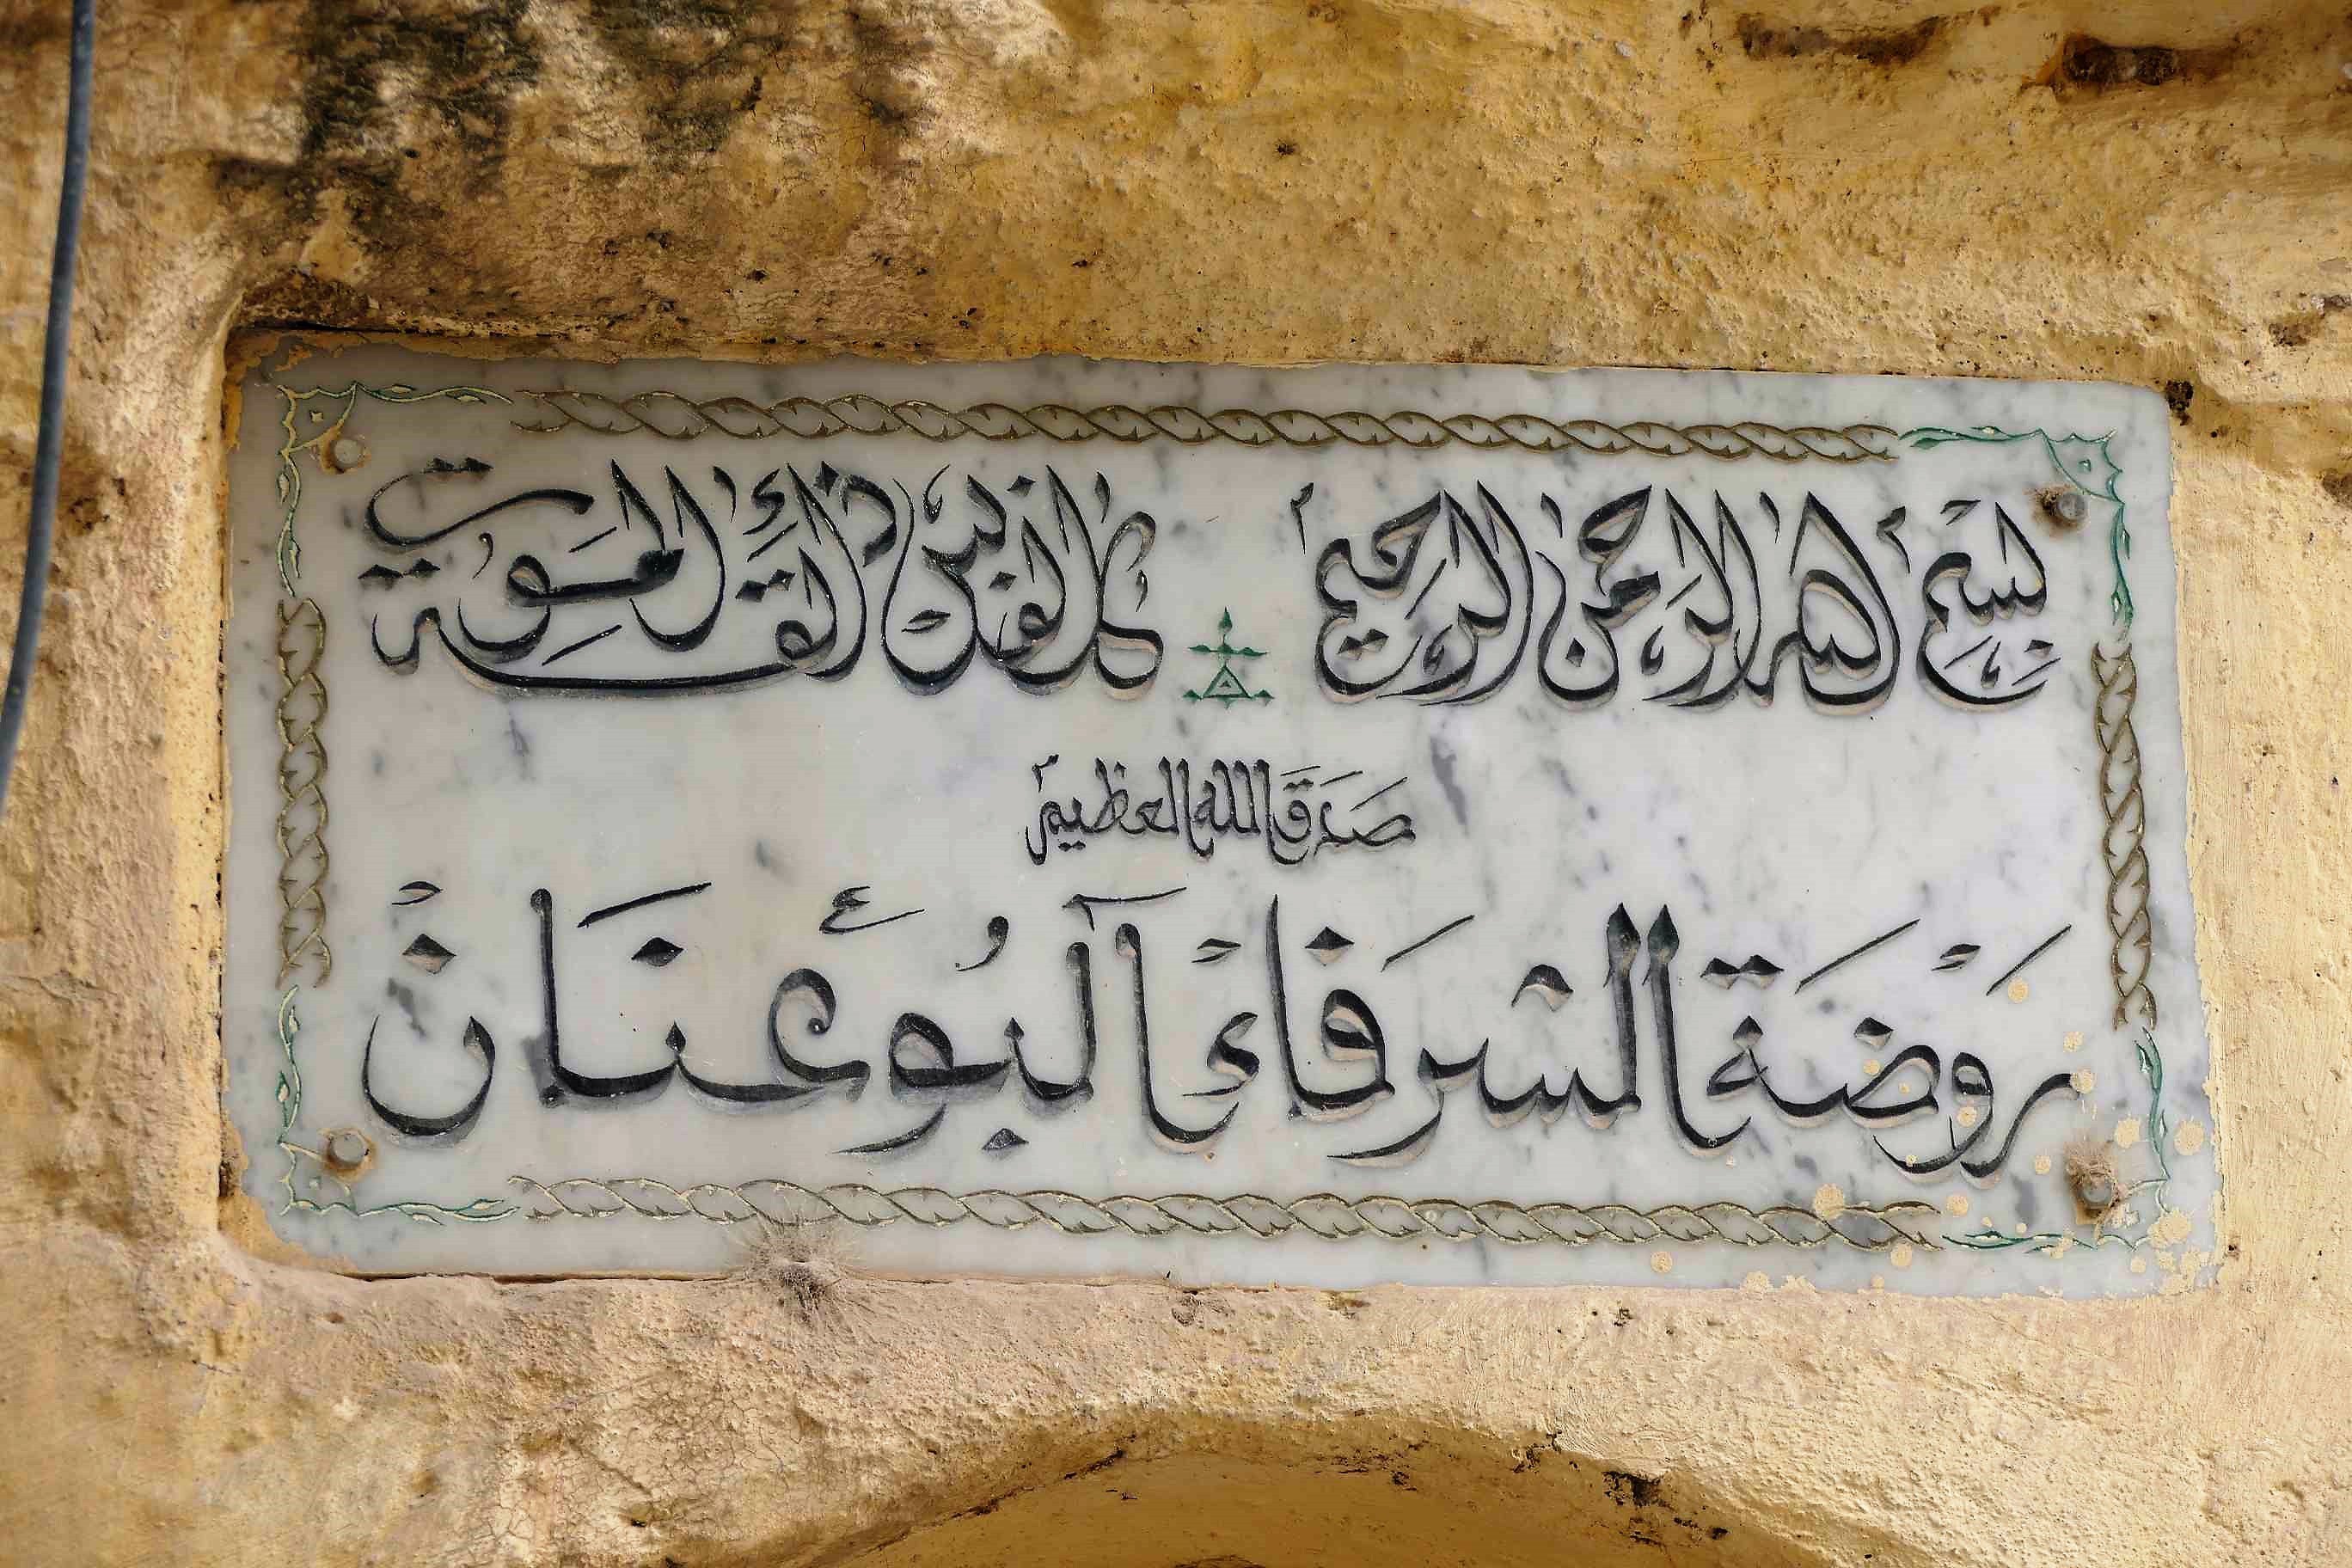 بسم الله الرحمن الرحيم كل نفس ذائقة الموت
صدق الله العظيم
رَوْضَة الشرَفاءْ آلبُوعْنَانْ